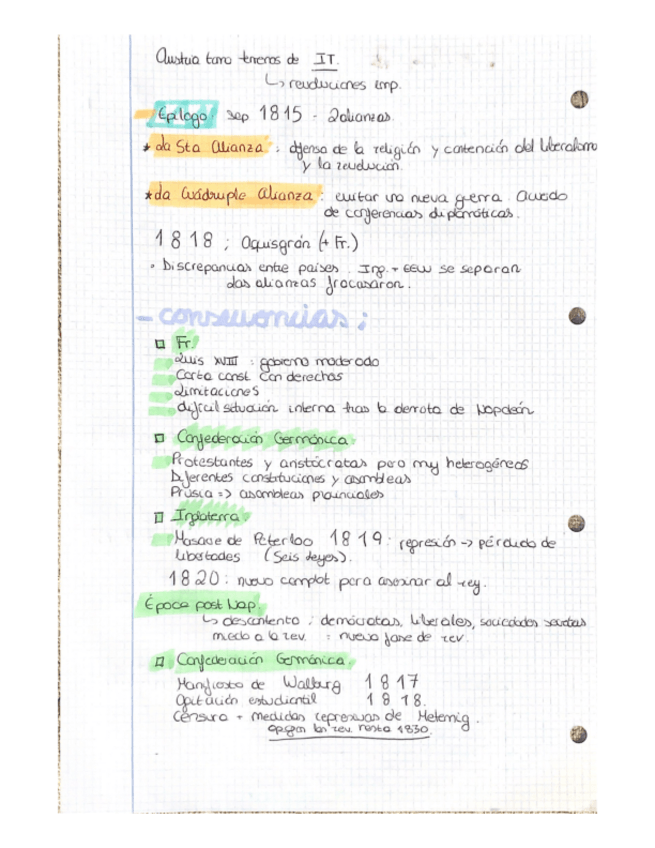 Austria toma terrenos de IT.
↳ revoluciones imp.
Epílogo: sep 1815 - 2 alianzas.
* La Sta Alianza : defensa de la religión y contención del liberalismo
y la revolución.
* La Cuádruple Alianza : evitar una nueva guerra. Acuerdo
de conferencias diplomáticas.
1818 ; Aquisgrán (+ Fr.)
• Discrepancias entre países. Ing. + EEUU se separan
Las alianzas fracasaron.
- consecuencias ;
Fr.
Luis XVIII : gobierno moderado
Carta const. con derechos
Limitaciones
difícil situación interna tras la derrota de Napoleón
Confederación Germánica.
Protestantes y aristócratas pero muy heterogéneos
Diferentes constituciones y asambleas
Prusia => asambleas provinciales
Inglaterra
Masacre de Peterloo 1819 : represión -> pérdida de
libertades (Seis Leyes).
1820 : nuevo complot para asesinar al rey.
Época post Nap.
↳ descontento ; demócratas, liberales, sociedades secretas
miedo a la rev. = nueva fase de rev.
Confederación Germánica.
Manifiesto de Walburg 1817
Agitación estudiantil 1818.
Censura + medidas represivas de Meternig.
apagan las rev. hasta 1830.